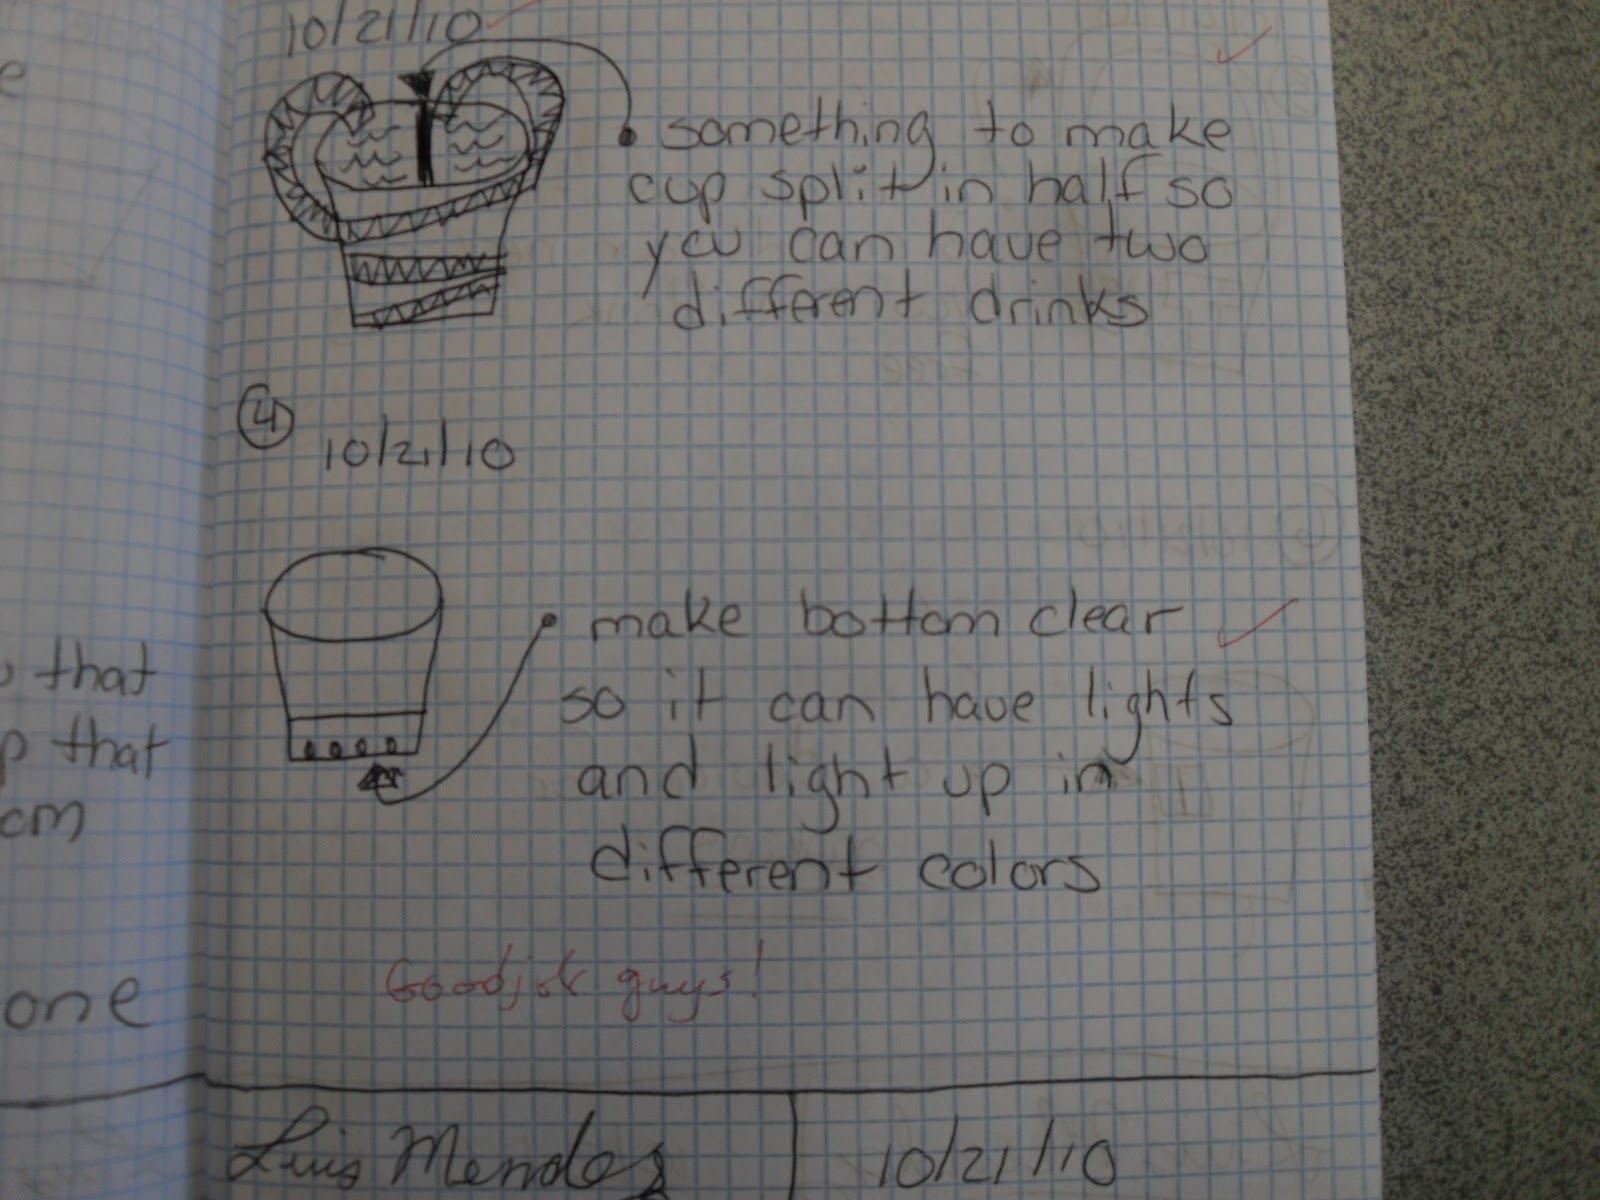 e
10/21/10
something to make
cup split in half so
you can have two
different drinks
4
10/21/10
make bottom clear
so it can have lights
and light up in
different colors
that
p that
om
one
Good job guys!
Luis Mendez
10/21/10